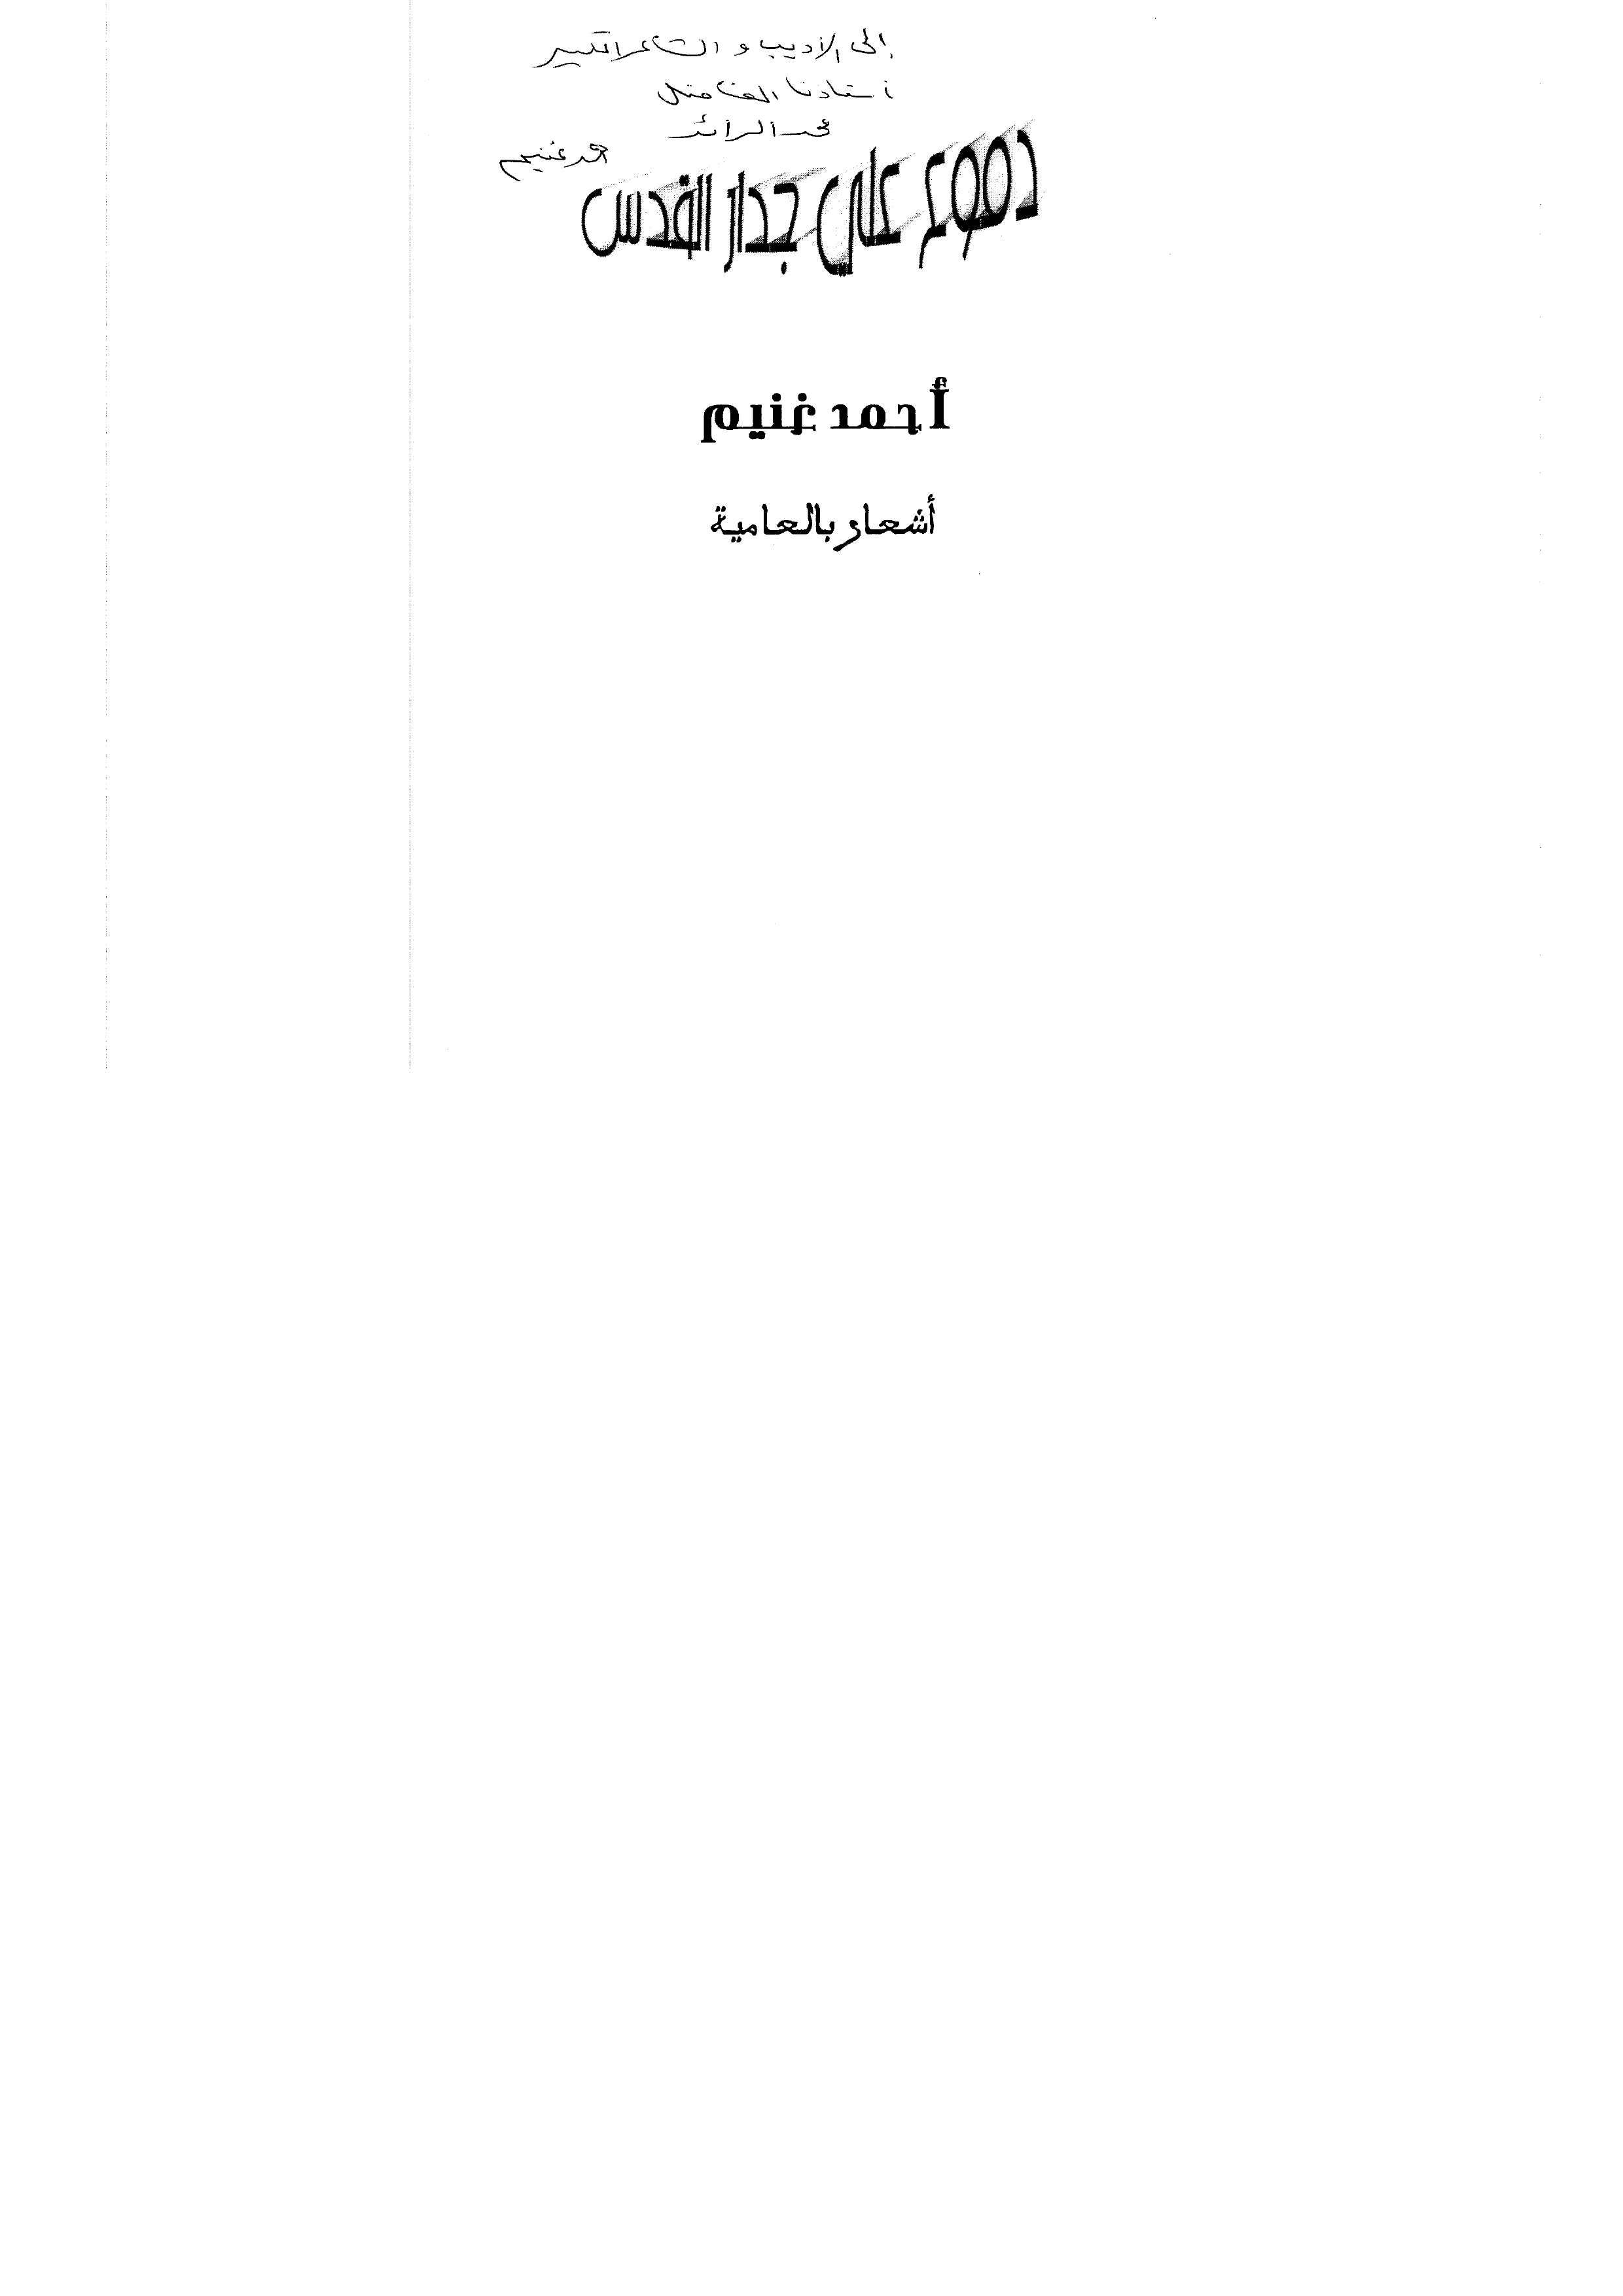 إلى الأديب و الشاعر الكبير
أستاذنا الفاضل
محمد الرائد
أحمد غنيم
دموع علي جدار القدس
أحمد غنيم
أشعار بالعامية